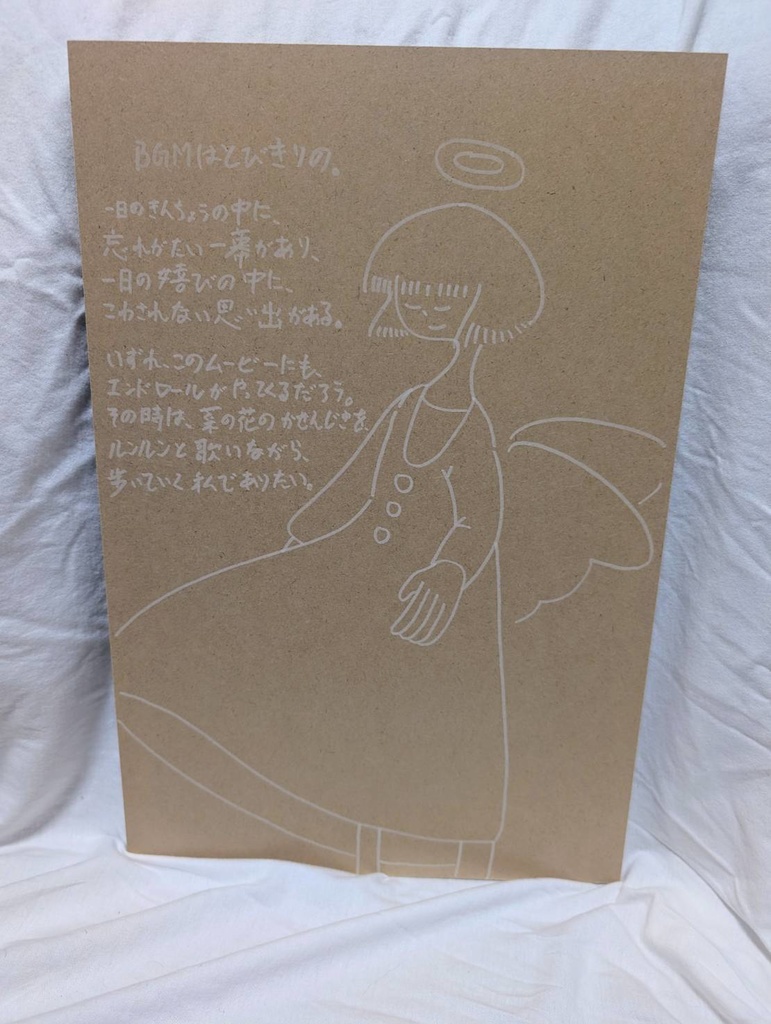 BGMはとびきりの。
一日のきんちょうの中に、
忘れがたい一幕があり、
一日の嬉びの中に、
こわされない思い出がある。
いずれ、このムービーにも、
エンドロールがやってくるだろう。
その時は、菜の花のかせんじきを、
ルンルンと歌いながら、
歩いていく私でありたい。